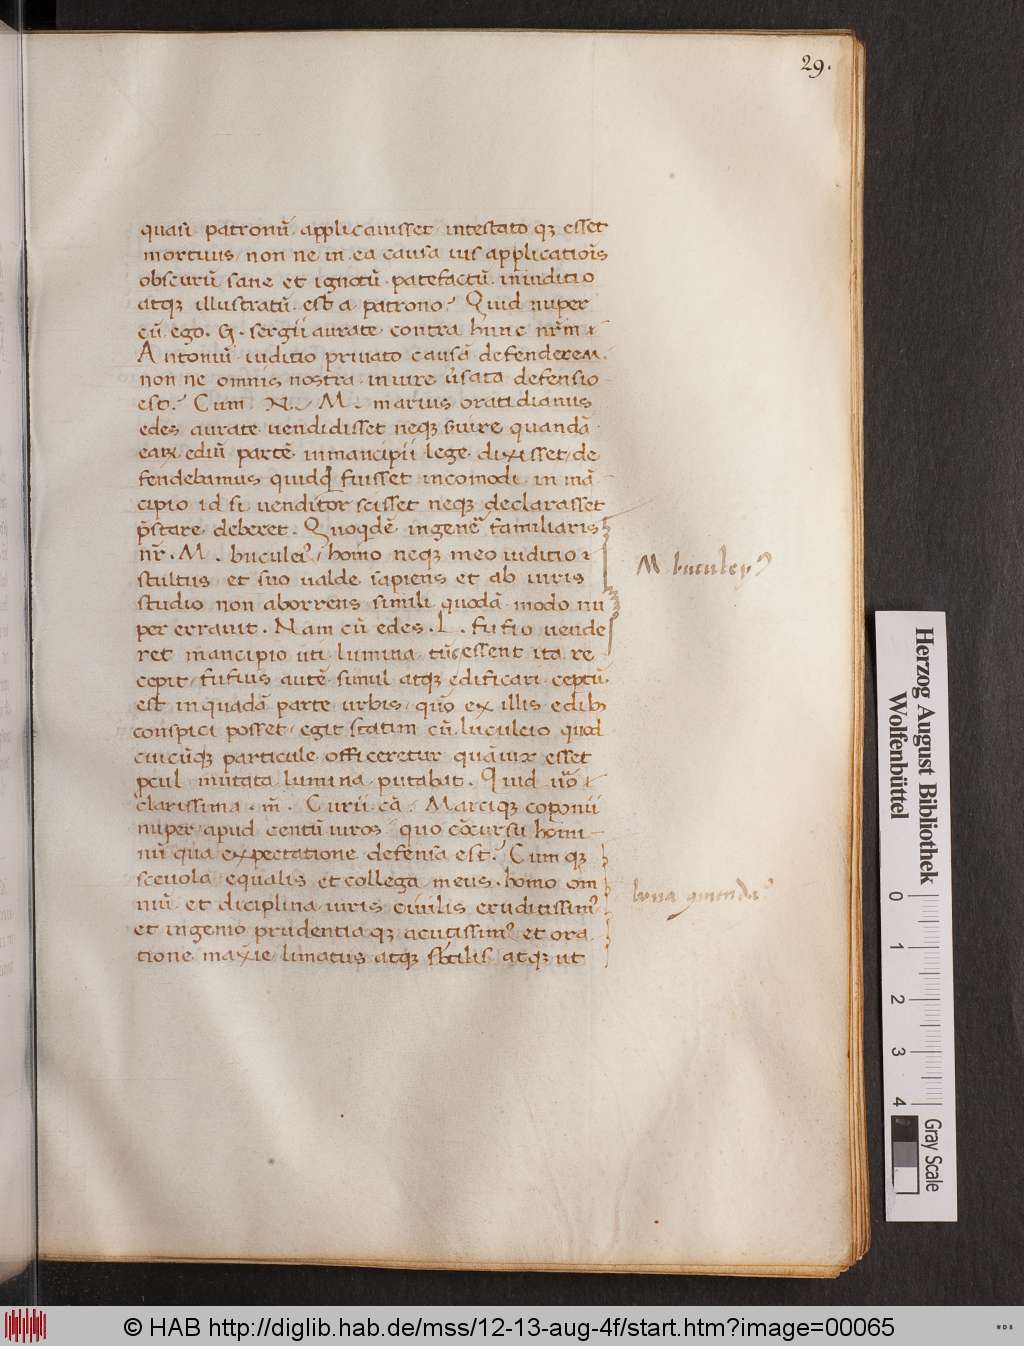 29.
quasi patronū applicauisset intestato qʒ esset
mortuus non ne in ea causa ius applicatiōis
obscurū sane et ignotū patefactū in iuditio
atqʒ illustratū est a patrono? Quid nuper
cū ego. G. sergii aurate contra hunc nr̄m
Antoniū iuditio priuato causā defenderem.
non ne omnis nostra in iure ūsata defensio
est? Cum M. marius oratidianus
edes aurate uendidisset neqʒ seruire quandā
earum ediū partē in mancipii lege dixisset de
fendebamus quidqd fuisset incomodi in mā
cipio id si uenditor scisset neqʒ declarasset
p̄stare deberet. Quoqdē ingenē familiaris
nr̄. M. buculei⁹ homo neqʒ meo iuditio
stultus et suo ualde sapiens et ab iuris
studio non aborrens simili quodā modo nu
per errauit. Nam cū edes. L. fufio uende
ret mancipio uti lumina tūc essent ita re
cepit fufius autē simul atqʒ edificari ceptū
est in quadā parte urbis quō ex illis edib
conspici posset egit statim cū luculeio quod
cuicūqʒ particule officeretur quāuix esset
pcul mutata lumina putabat. Quid uo
clarissima. m̄. Curii cā Marciqʒ coponii
nuper apud centū uiros quo cōcursu homi
nū qua expectatione defensa est? Cum qʒ
sceuola equalis et collega meus homo om
niū et diciplina iuris ciuilis eruditissim⁹
et ingenio prudentia qʒ acutissim⁹ et ora
tione maxīe limatus atqʒ sbtilis atqʒ ut
M buculey⁹
Herzog August Bibliothek
Wolfenbüttel
0 1 2 3 4
Gray Scale
© HAB http://diglib.hab.de/mss/12-13-aug-4f/start.htm?image=00065